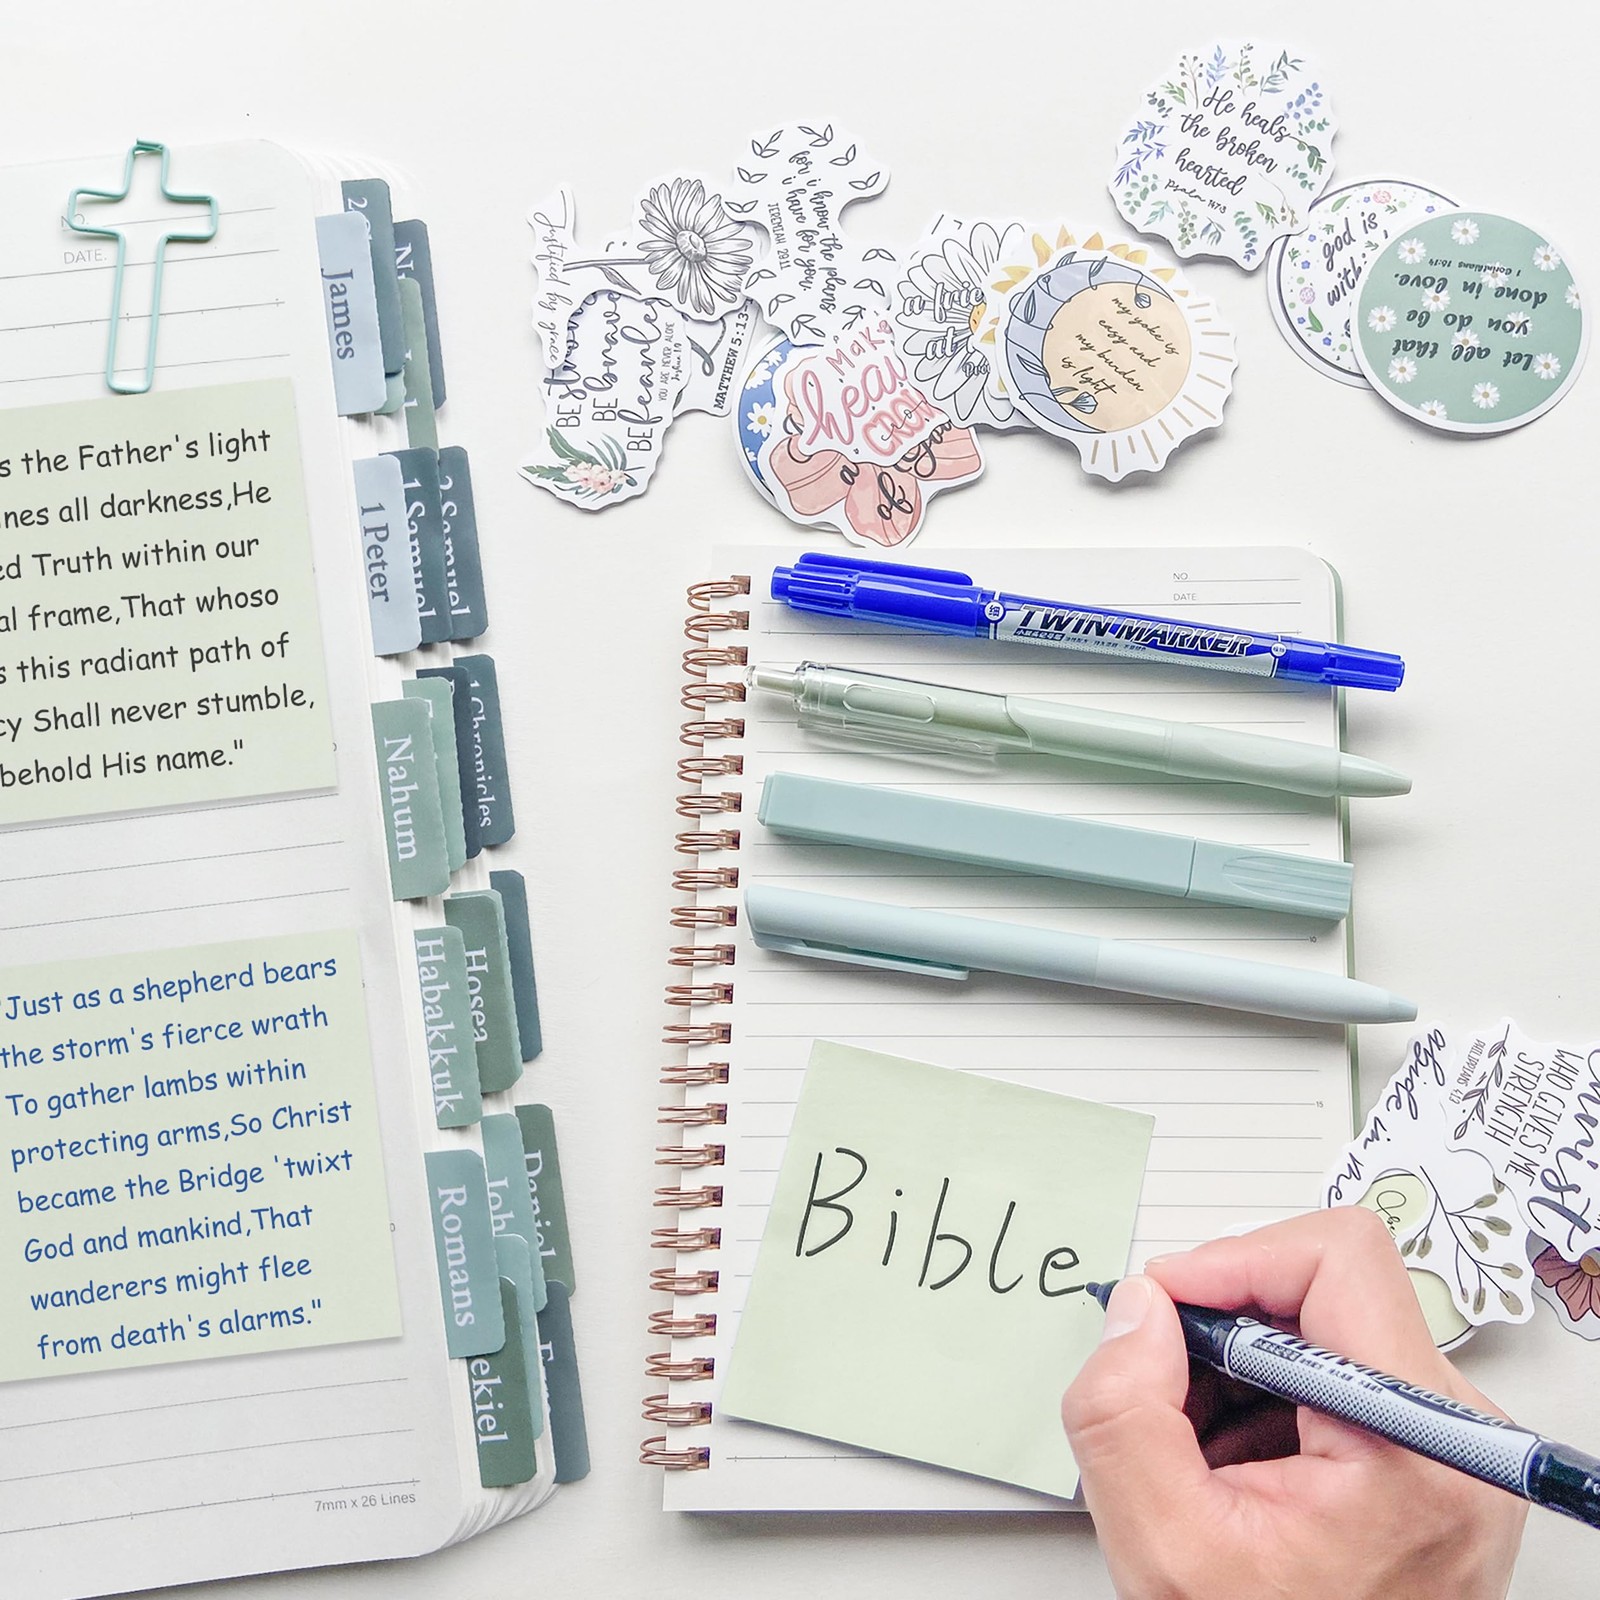 DATE.
s the Father's light
nes all darkness,He
ed Truth within our
al frame,That whoso
s this radiant path of
cy Shall never stumble,
behold His name."
"Just as a shepherd bears
the storm's fierce wrath
To gather lambs within
protecting arms,So Christ
became the Bridge 'twixt
God and mankind,That
wanderers might flee
from death's alarms."
7mm x 26 Lines
James
1 Peter
1 Samuel
2 Samuel
Nahum
1 Chronicles
Habakkuk
Hosea
Romans
Job
Daniel
ekiel
Justified by grace
BE strong
BE brave
BE fearless
YOU ARE NEVER ALONE
Joshua 1:9
MATTHEW 5:13
for i know the plans
i have for you.
JEREMIAH 29:11
Make
heaven
CROWD
a
of
a frie
at
my yoke is
easy and
my burden
is light
He heals
the broken
hearted
psalm 147:3
god is
with
Let all that
you do be
done in love.
1 Corinthians 16:14
NO.
DATE.
TWIN MARKER
10
15
Bible
abide in me
PHILIPPIANS 4:13
WHO GIVES ME
STRENGTH